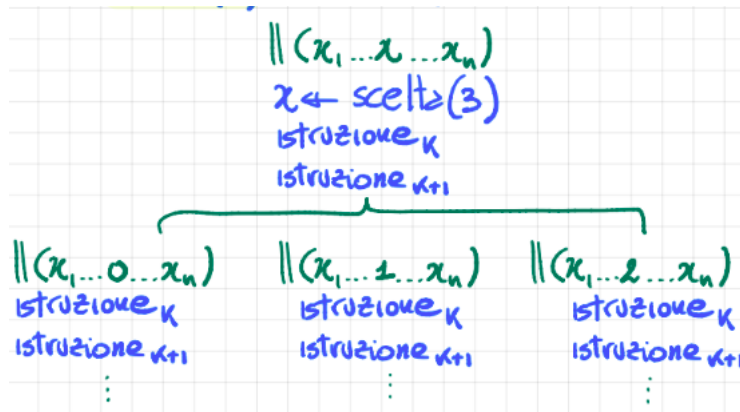 || (x₁ ... x ... xₙ)
x ← scelta(3)
istruzione K
istruzione K+1
|| (x₁ ... 0 ... xₙ) || (x₁ ... 1 ... xₙ) || (x₁ ... 2 ... xₙ)
istruzione K istruzione K istruzione K
istruzione K+1 istruzione K+1 istruzione K+1
⋮ ⋮ ⋮